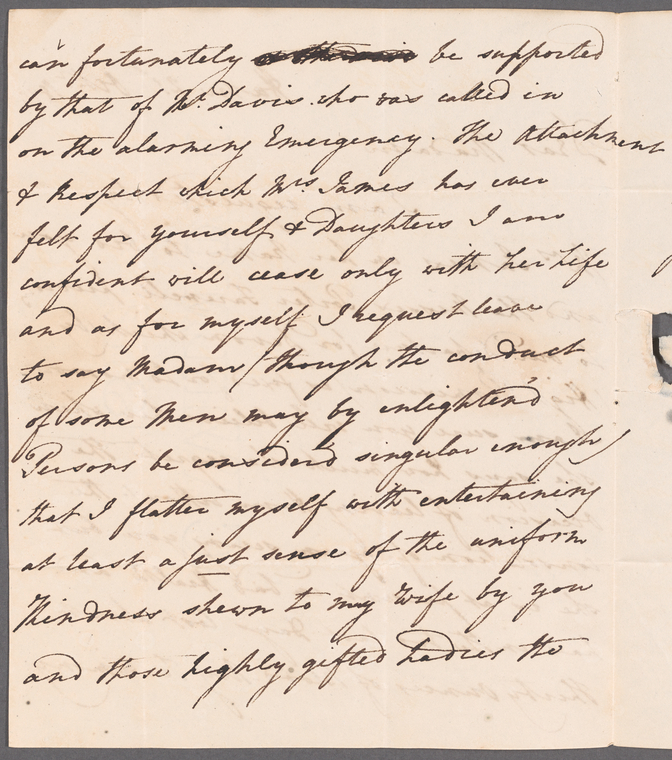 can fortunately be supported
by that of Mr. Davis who was called in
on the alarming Emergency. The Attachment
& Respect which Mrs James has ever
felt for yourself & Daughters I am
confident will cease only with her Life
and as for myself I request leave
to say Madam (though the conduct
of some Men may by enlighten'd
Persons be considerd singular enough)
that I flatter myself with entertaining
at least a just sense of the uniform
Kindness shewn to my Wife by you
and those highly gifted Ladies the